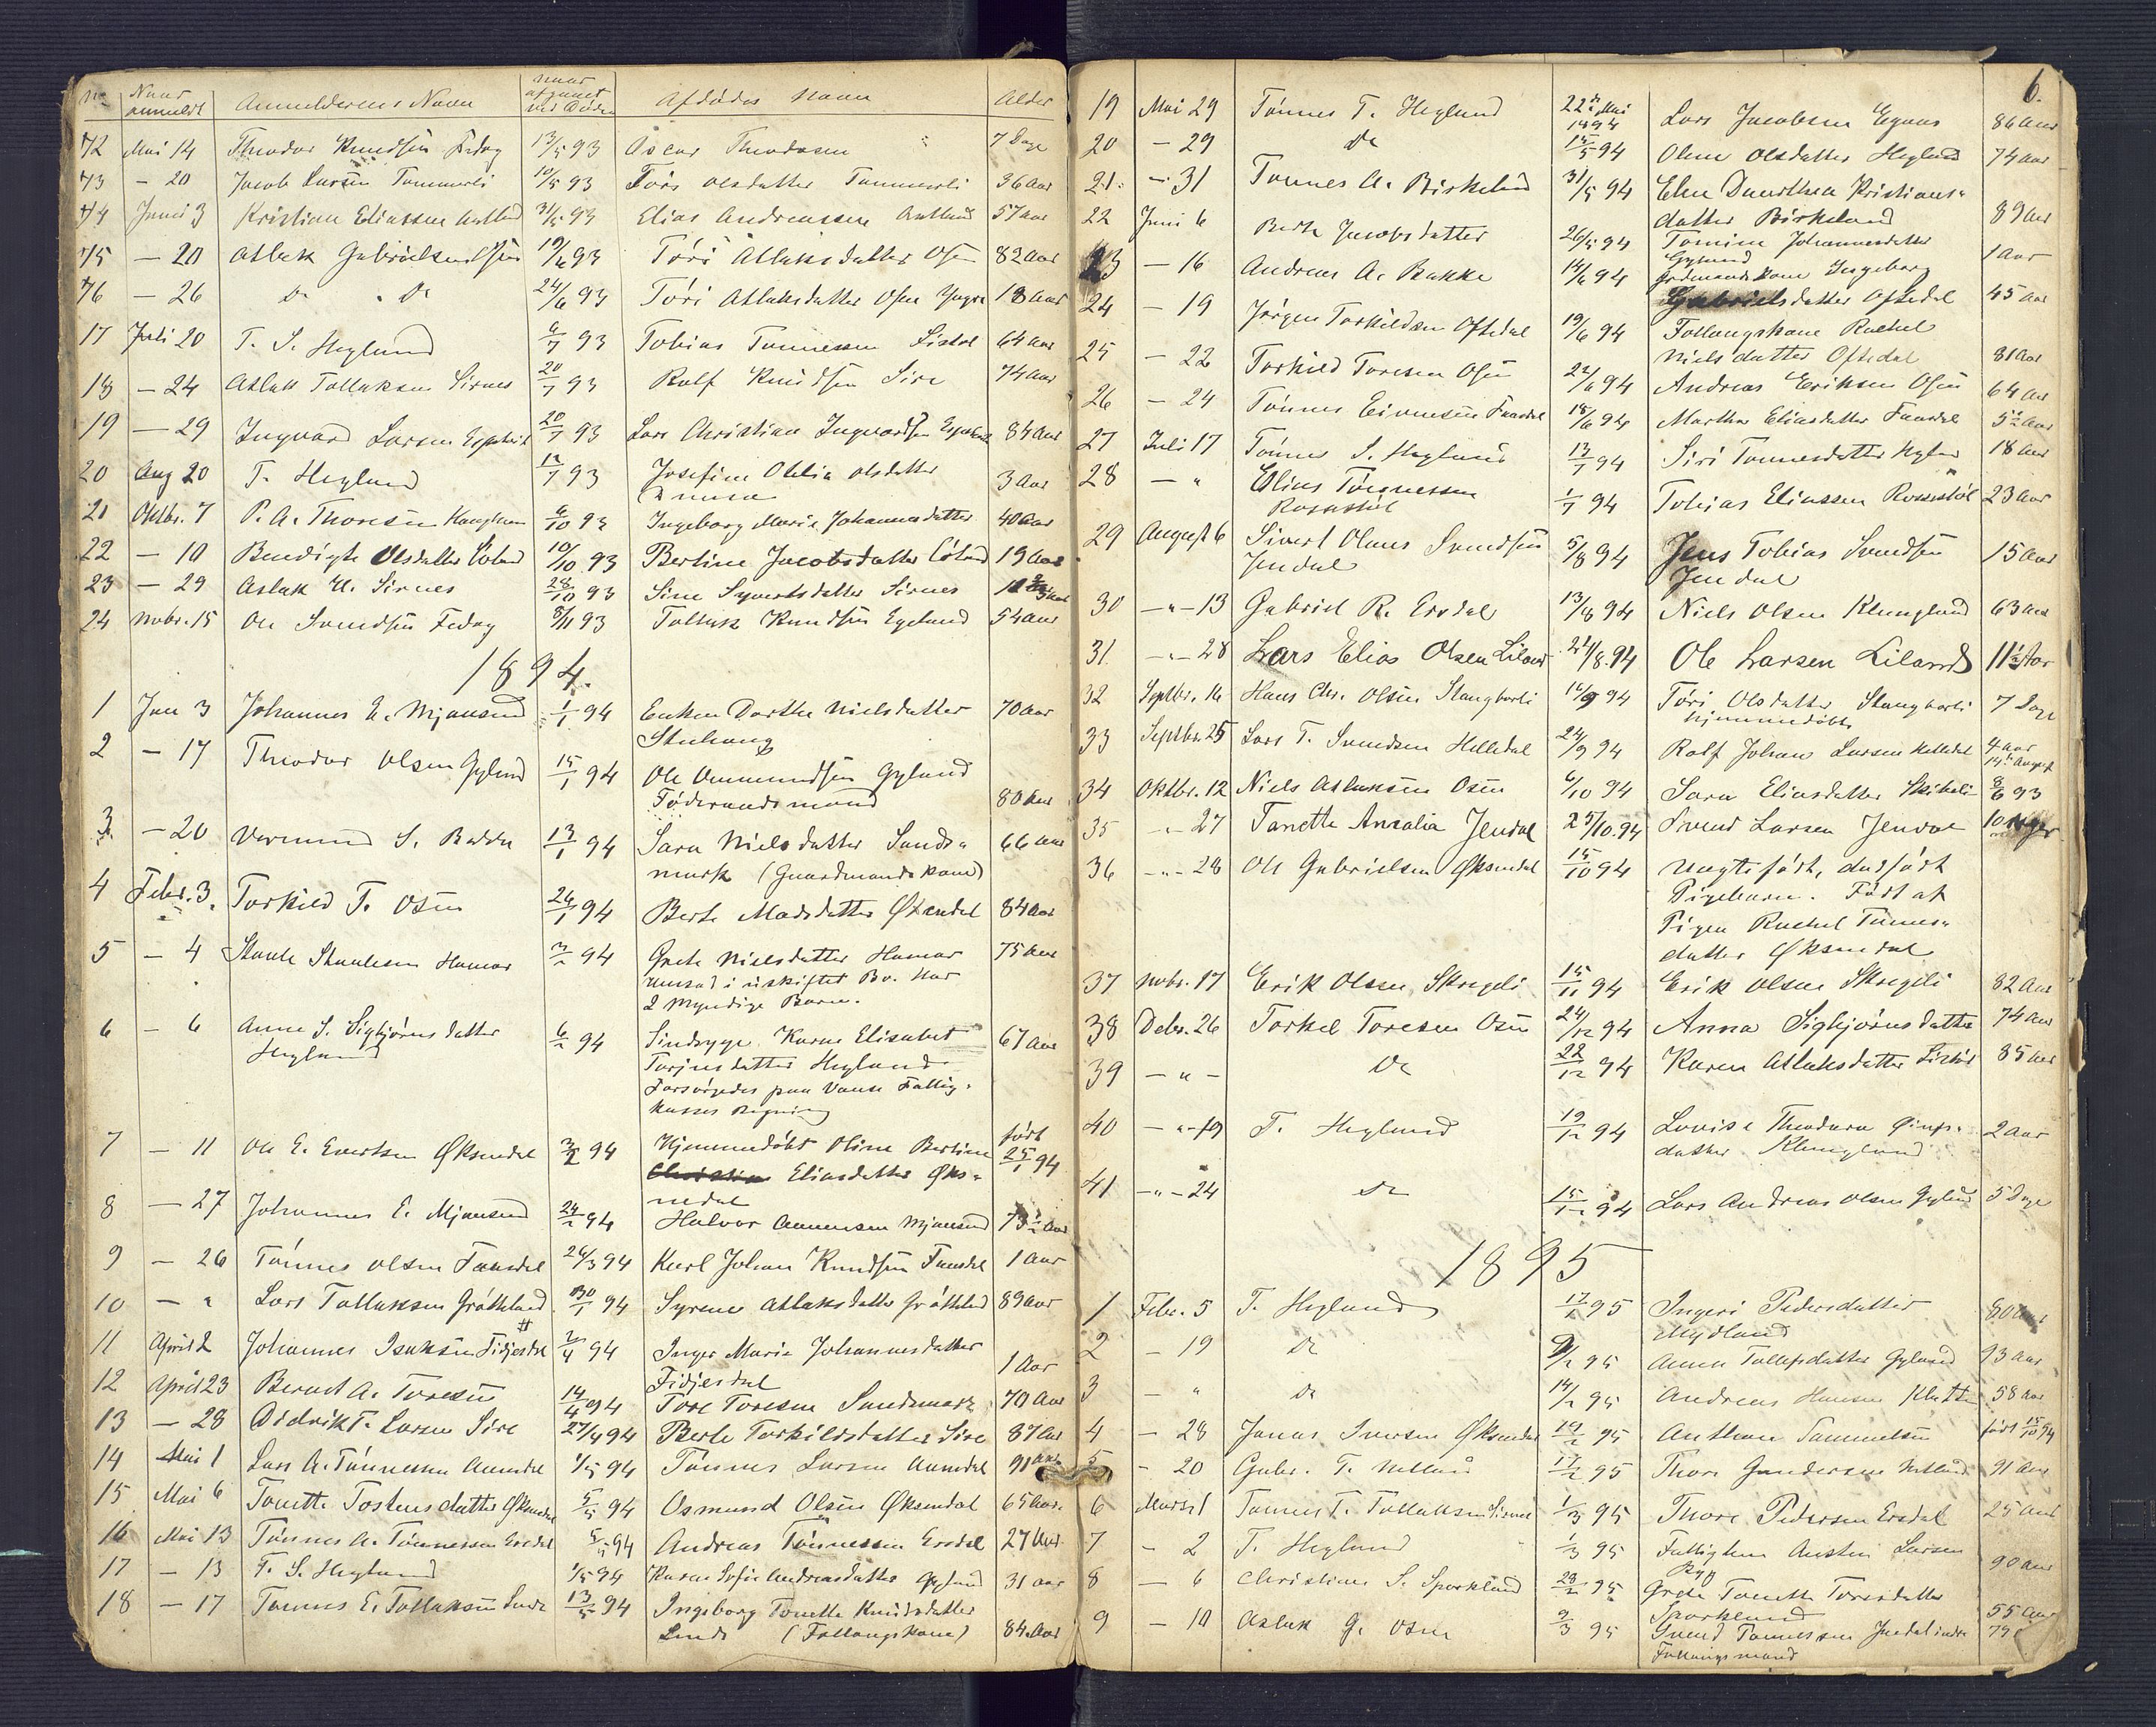 No Naar anmeldt Anmelderens Navn naar afgaaet ved Døden Afdødes Navn Alder
12 Mai 14 Theodor Knudsen Fedog 13/5 93 Oscar Theodosen 7 Dage
13 - 20 Jacob Larsen Tommerli 10/5 93 Olsdatter Tommerli 36 Aar
14 Juni 3 Kristian Eliassen 31/5 93 Elias Andreassen 57 Aar
15 - 20 Aslak Gabrielsen 19/6 93 Tøri Atlaksdatter Osen 82 Aar
16 - 26 Do Do 24/6 93 Tøri Atlaksdatter Osen Yngre 18 Aar
17 Juli 20 T. S. Heglund 6/7 93 Tobias Tønnessen 64 Aar
18 - 24 Aslak Tollaksen Sirnes 20/7 93 Rolf Knudsen Sire 74 Aar
19 - 29 Ingvard Larsen 20/7 93 Lars Christian Ingvardsen 84 Aar
20 Aug 20 T. Heglund 12/7 93 Josefine Otilia Olsdatter 3 Aar
21 Oktbr. 7 P. A. Thoresen 6/10 93 Ingeborg Marie Johannesdatter 40 Aar
22 - 10 Bendigte Olsdatter 10/10 93 Bertine Jacobsdatter 19 Aar
23 - 29 Aslak Sirnes 28/10 93 Sine Syvertsdatter Sirnes
24 Novbr. 15 Ole Svendsen Fedog 8/11 93 Tollak Knudsen Egeland 54 Aar
1894.
1 Jan 3 Johannes E. Mjaasund 1/1 94 Enken Dorthe Nielsdatter 70 Aar
2 - 17 Theodor Olsen Gyland 15/1 94 Ole Ommundsen Gyland
Føderaadsmand 80 Aar
3. - 20 S. 13/1 94 Sara Nielsdatter Sands-
mark (Gaardmandskone) 66 Aar
4 Febr. 3. Torkild T. Osen 26/1 94 Berte Madsdatter Øxendal 84 Aar
5 - 4 Staale Staalesen Hamar 3/2 94 Grete Nielsdatter Hamar 75 Aar
i uskiftet Bo. Har
2 Myndige Børn.
6 - 6 Anne S. Sigbjørnsdatter
Heglund 6/2 94 Sindsyge Karen Elisabet 67 Aar
Torjusdatter Heglund
Forsørgedes paa Vanse Fattig-
kasses Regning
7 - 11 Ole E. Evertsen Øksendal 3/2 94 Hjemmedøbt Oline Bertine født 25/1 94
Eliasdatter Øks-
nedal
8 - 27 Johannes E. Mjaasund 24/2 94 Halvor Aanensen Mjaasund
9 - 26 Tønnes Olsen 26/3 94 Karl Johan Knudsen 1 Aar
10 - " Lars Tollaksen Grøtteland 94 Syrene Atlaksdatter 89 Aar
11 April 2 Johannes Isaksen Fidjesdal 2/4 94 Inger Marie Johannesdatter
Fidjesdal 1 Aar
12 April 23 Bernt A. Toresen 14/4 94 Tore Toresen Sandsmark 70 Aar
13 - 28 Didrik T. Larsen Sire 27/4 94 Berte Torkildsdatter Sire 87 Aar
14 Mai 1 Lars A. Tønnessen 1/5 94 Tønnes Larsen 91 Aar
15 Mai 6 Tonette Tostensdatter Øksendal 5/5 94 Osmund Olsen Øksendal 65 Aar.
16 Mai 13 Tønnes A. Tønnessen Ersdal 5/5 94 Andreas Tønnessen Ersdal 27 Aar
17 - 13 T. S. Heglund 1/5 94 Karen Sofie Andreasdatter Gylund 31 Aar
18 - 17 Tønnes E. Tollaksen Lunde 13/5 94 Ingeborg Tonette Knudsdatter
Lunde (Follaugskone) 84 Aar
6.
19 Mai 29 Tønnes T. Heglund 22de Mai 1894 Lars Jacobsen 86 Aar
20 - 29 do 12/5 94 Oline Olsdatter Heglund 74 Aar
21. - 31 Tønnes A. Birkeland 31/5 94 Elen Dorthea Kristians-
datter Birkeland 89 Aar
22 Juni 6 Berte Jacobsdatter 26/5 94 Tomine Johannesdatter
Gylund 1 Aar
23 - 16 Andreas A. Bakke 14/6 94 Gardmandskone Ingeborg
Gabrielsdatter Oftedal 45 Aar
24 - 19 Jørgen Torkildsen Oftedal 19/6 94 Follaugskone Rachel
Nielsdatter Oftedal 81 Aar
25 - 22 Torkild Toresen Osen 22/6 94 Andreas Eriksen Osen 64 Aar
26 - 24 Tønnes 18/6 94 Martha Eliasdatter
27 Juli 17 Tønnes S. Heglund 13/7 94 Siri Tønnesdatter 18 Aar
28 - " Elias Tønnessen
Rosselstøl 1/7 94 Tobias Eliassen 23 Aar
29 August 6 Sivert Olaus Svendsen
Jendal 5/8 94 Jens Tobias Svendsen
Jendal 15 Aar
30 - " - 13 Gabriel R. Ersdal 13/8 94 Niels Olsen Klunglund 63 Aar
31. - " - 28 Lars Elias Olsen Liland 24/8.94 Ole Larsen Liland 11½ Aar
32 Septbr. 16 Hans Chr. Olsen Stangborli 16/9 94 Tøri Olsdatter Stangborli
hjemmedøbt 7 Dage
33 Septbr. 25 Lars T. Svendsen Helledal 24/9 94 Rolf Johan Larsen Helledal 4 Aar
14de August
34 Oktbr. 12 Niels Aslaksen Osen 6/10 94 Sara Eliasdatter 8/6 93
35 - " - 27 Tanette Amalia Jendal 25/10.94 Svend Larsen Jendal
36 - " - 28 Ole Gabrielsen Øksendal 15/10 94 Uægtefødt, dødfødt
Pigebarn. Født af
Pigen Rachel Tønnes-
datter Øksendal
37 Novbr. 17 Erik Olsen Skregeli 15/11 94 Erik Olsen Skregeli 82 Aar
38 Debr. 26 Torkel Toresen Osen 24/12 94 Anna Sigbjørnsdatter 74 Aar
39 - " - do 22/12 94 Karen Atlaksdatter 85 Aar
40 - " - 19 T. Heglund 19/12 94 Lovise Theodora
datter Klunglund 2 Aar
41 - " - 24 do 15/12 94 Lars Andreas Olsen Gylund 5 Dage
1895
1 Febr. 5 T. Heglund 17/1 95 Ingeri Pedersdatter
Mydland
2 - 19 do 9/2 95 Anna Tollefsdatter Gylund 93 Aar
3 - " do 14/2 95 Andreas Hansen 58 Aar
4 - 28 Jonas Iversen Øksendal 19/2 95 Anthon født 15/10 94
5 - 20 Gabr. T. Netland 17/2 95 Thore Gundersen Netland 91 Aar
6 Marts 1 Tønnes T. Tollaksen Sirnes 1/3 95 Thore Pedersen Ersdal 25 Aar
7 - 2 T. Heglund 1/3 95 Fattiglem Austen Larsen
Ryg 90 Aar
8 - 6 Christian S. Sporkland 28/2 95 Grete Tonette Toresdatter
Sporkland 55 Aar
9 - 10 Aslak G. Osen 9/3 95 Svend Tønnessen Jendal indre
Follaugsmand